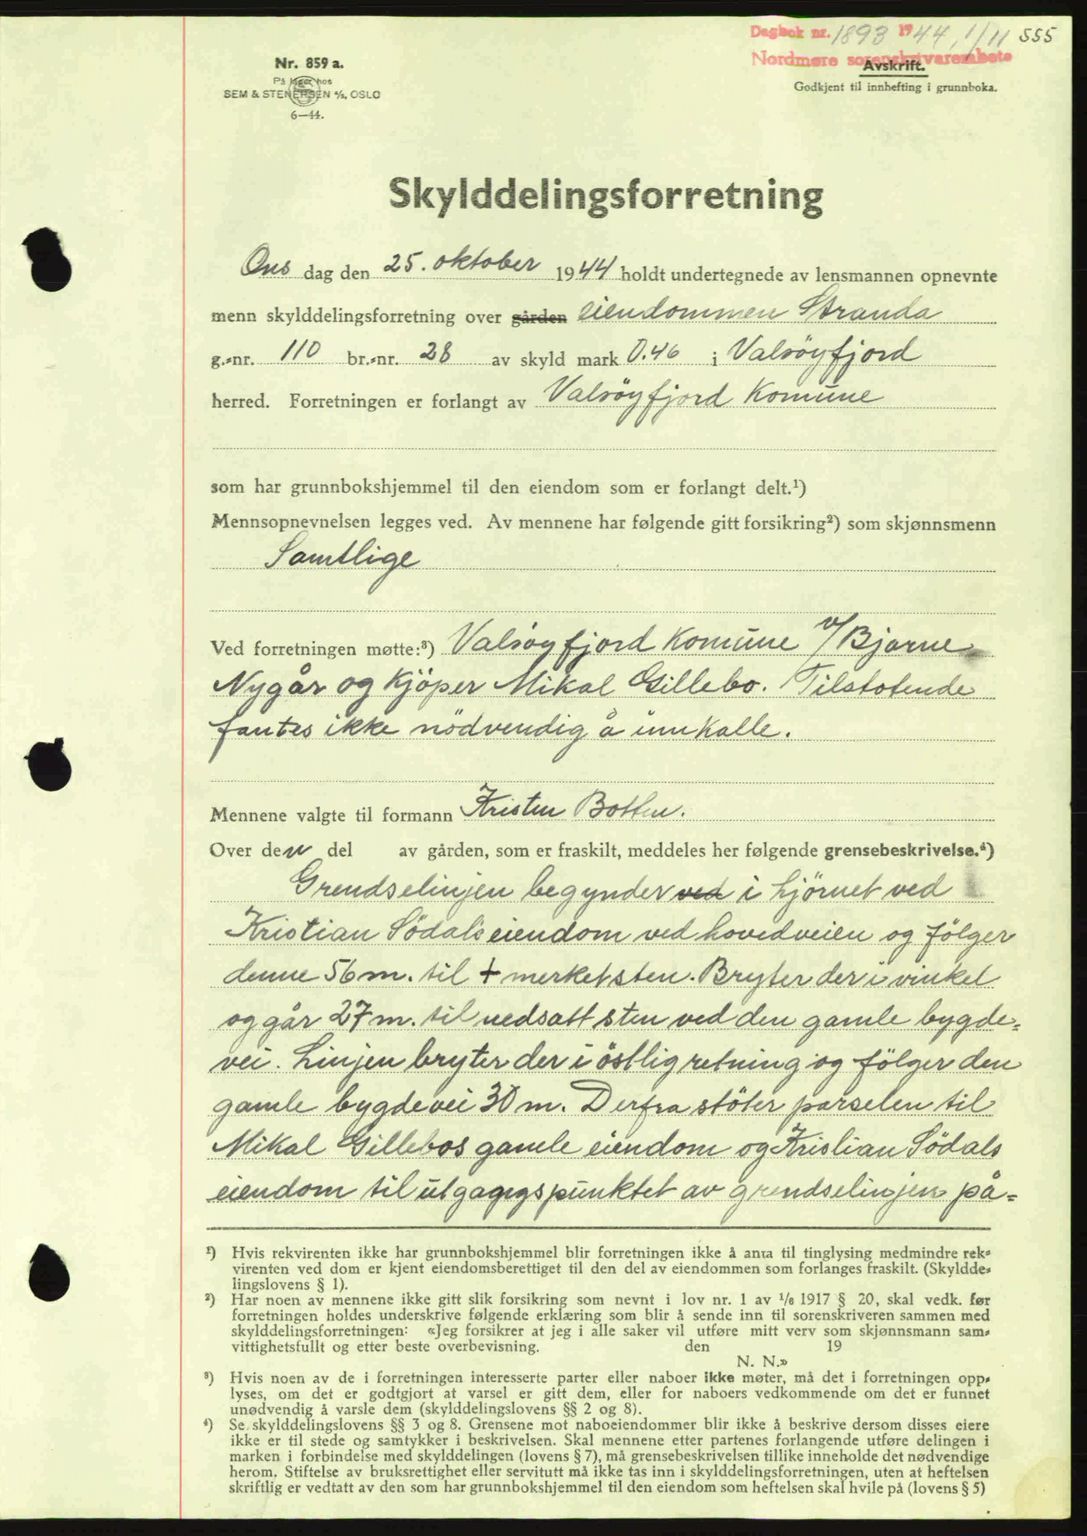 Dagbok nr. 1893 1944, 1/11 555
Nordmøre sorenskriverembete
Nr. 859 a.
På lager hos
SEM & STENERSEN A/S, OSLO
6—44.
Avskrift.
Godkjent til innhefting i grunnboka.
Skylddelingsforretning
Ons dag den 25. oktober 1944 holdt undertegnede av lensmannen opnevnte
menn skylddelingsforretning over gården eiendommen Stranda
g.-nr. 110 br.-nr. 28 av skyld mark 0.46 i Valsöyfjord
herred. Forretningen er forlangt av Valsöyfjord Komune
som har grunnbokshjemmel til den eiendom som er forlangt delt.¹)
Mennsopnevnelsen legges ved. Av mennene har følgende gitt forsikring²) som skjønnsmenn
Samtlige
Ved forretningen møtte:³) Valsöyfjord Komune v/Bjarne
Nygår og Kjöper Mikal Gillebo. Tilstötende
fantes ikke nödvendig å innkalle.
Mennene valgte til formann Kristen Botten.
Over den del av gården, som er fraskilt, meddeles her følgende grensebeskrivelse.⁴)
Grendselinjen begynder ved i hjörnet ved
Kristian Södals eiendom ved hovedveien og fölger
denne 56 m. til + merket sten. Bryter der i vinkel
og går 27 m. til nedsatt sten ved den gamle bygde-
vei. Linjen bryter der i östlig retning og fölger den
gamle bygdevei 30 m. Derfra stöter parselen til
Mikal Gillebos gamle eiendom og Kristian Södals
eiendom til utgagngspunktet av grendselinjen på-
¹) Hvis rekvirenten ikke har grunnbokshjemmel blir forretningen ikke å anta til tinglysing medmindre rek-
virenten ved dom er kjent eiendomsberettiget til den del av eiendommen som forlanges fraskilt. (Skyldde-
lingslovens § 1).
²) Har noen av mennene ikke gitt slik forsikring som nevnt i lov nr. 1 av 1/6 1917 § 20, skal vedk. før
forretningen holdes underskrive følgende erklæring som blir å sende inn til sorenskriveren sammen med
skylddelingsforretningen: «Jeg forsikrer at jeg i alle saker vil utføre mitt verv som skjønnsmann sam-
vittighetsfullt og etter beste overbevisning. den 19
N. N.»
³) Hvis noen av de i forretningen interesserte parter eller naboer ikke møter, må det i forretningen opp-
lyses, om det er godtgjort at varsel er gitt dem, eller for naboers vedkommende om det er funnet
unødvendig å varsle dem (skylddelingslovens §§ 2 og 8).
⁴) Se skylddelingslovens §§ 3 og 8. Grensene mot naboeiendommer blir ikke å beskrive dersom disses eiere
ikke er til stede og samtykker i beskrivelsen. Skal mennene etter partenes forlangende utføre delingen i
marken i forbindelse med skylddelingen (lovens § 7), må grensebeskrivelsen tillike inneholde det nødvendige
herom. Stiftelse av bruksrettighet eller servitutt må ikke tas inn i skylddelingsforretningen, uten at heftelsen
skriftlig er vedtatt av den som har grunnbokshjemmel til den eiendom som heftelsen skal hvile på (lovens § 5)